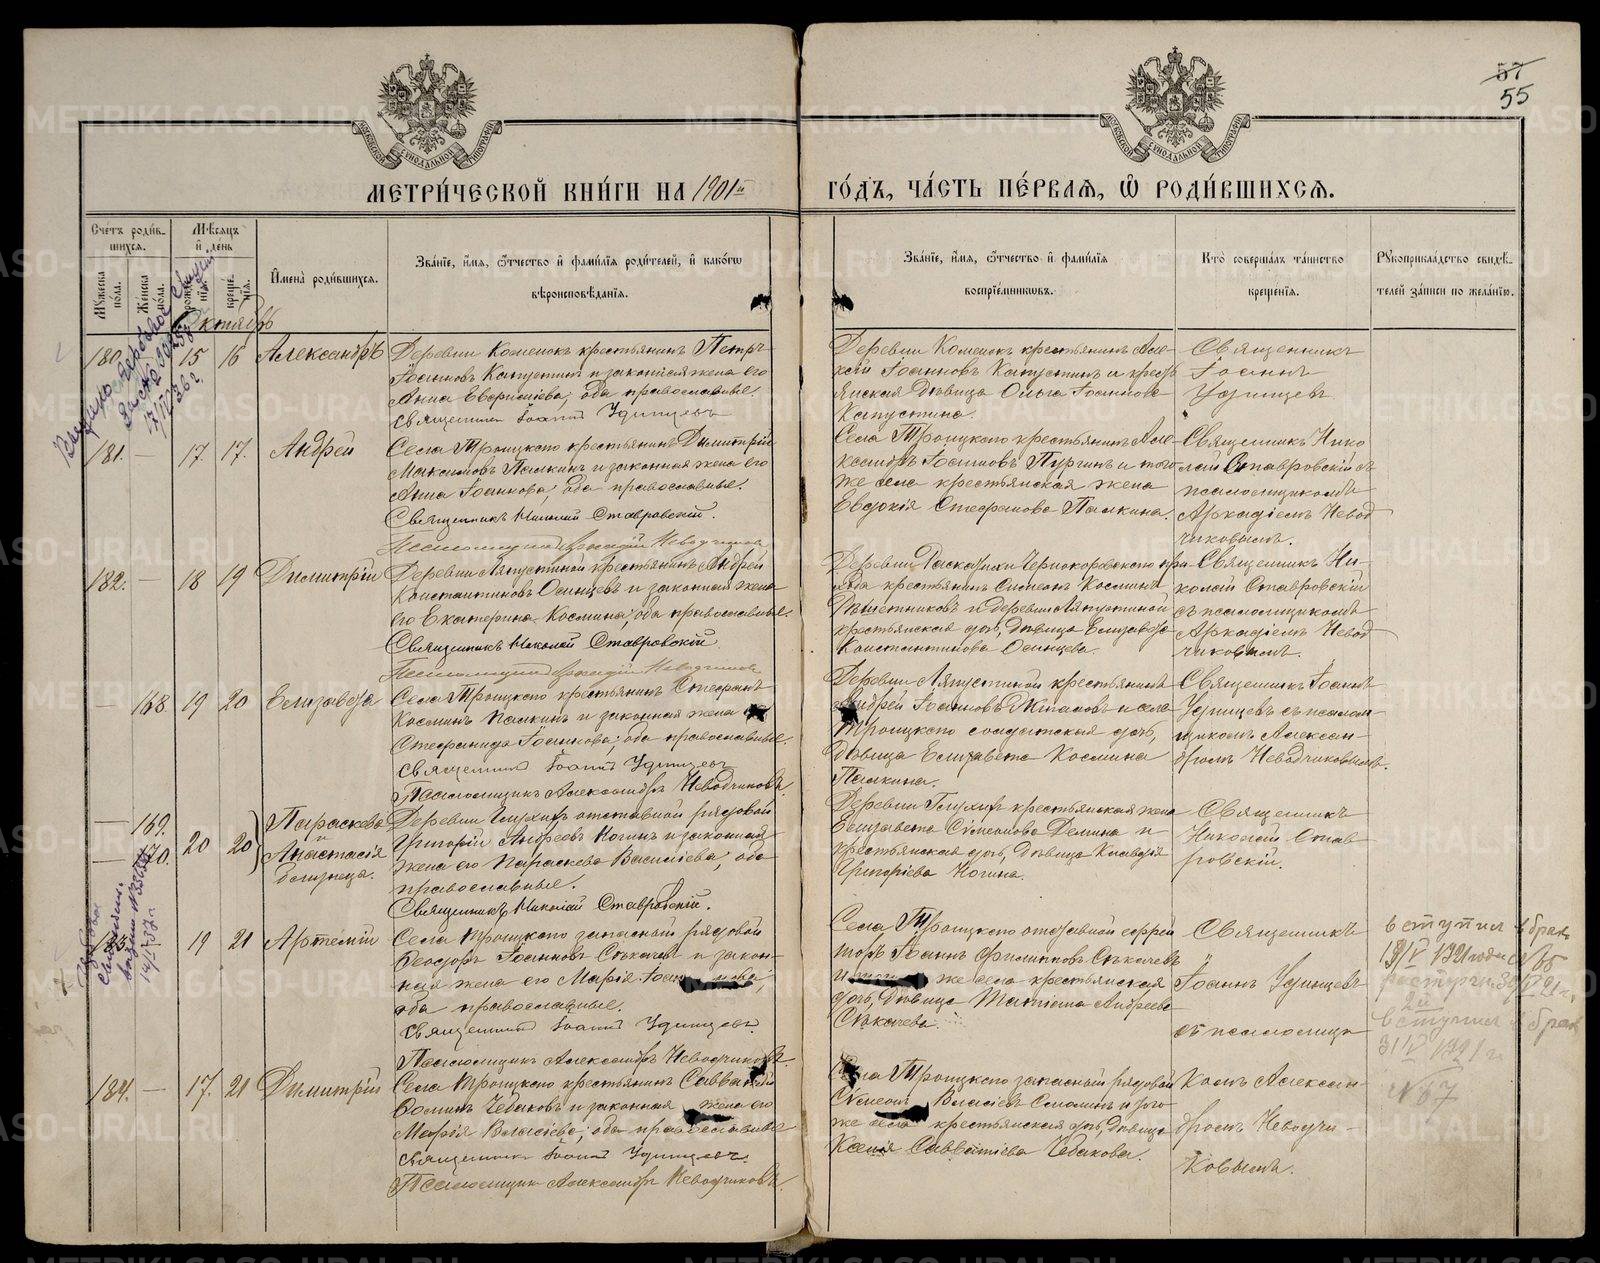 57
55
МЕТРИ́ЧЕСКОЙ КНИ́ГИ НА 1901й ГО́ДЪ, ЧА́СТЬ ПЕ́РВАЯ, Ѽ РОДИ́ВШИХСЯ.
Сче́тъ роди́в-
шихся.
Мꙋжеска пола.
Женска пола.
Мѣсяцъ
и҆ де́нь
рождє́нїя.
крещє́нїя.
И҆мена̀ роди́вшихся.
Зва́нїе, и҆́мя, ѻ҆́тчество и҆ фами́лїя роди́телей, и҆ како́гѡ
вѣроисповѣ́данїя.
Зва́нїе, и҆́мя, ѻ҆́тчество и҆ фами́лїя
воспрїе́мниковъ.
Кто̀ соверша́лъ та́инство
креще́нїя.
Рꙋкоприкла́дство свидѣ́-
телей за́писи по жела́нїю.
Октябрь
180. 15 16 Александръ
Деревни Коменокъ крестьянинъ Петръ
Іоанновъ Капустинъ и законная жена его
Анна; оба православные.
Священникъ Іоаннъ Удинцевъ
Деревни Коменокъ крестьянинъ Але-
ксѣй Іоанновъ Капустинъ и крестъ-
янская дѣвица Ольга Іоаннова
Капустина.
Священникъ
Іоаннъ
Удинцевъ
181. — 17. 17. Андрей
Села Троицкаго крестьянинъ Димитрій
Максимовъ Палкинъ и законная жена его
Анна Іоаннова, оба православные.
Священникъ Николай Ставровскій.
Псаломщикъ Аркадій Неводчиковъ
Села Троицкаго крестьянинъ Але-
ксандръ Іоанновъ Пургинъ и того
же села крестьянская жена
Евдокія Стефанова Палкина.
Священникъ Нико
лай Ставровскій съ
псаломщикомъ
Аркадіемъ Невод
чиковымъ.
182. — 18 19 Димитрій
Деревни Ляпустиной крестьянинъ Андрей
Константиновъ Осинцевъ и законная жена
его Екатерина Космина, оба православные.
Священникъ Николай Ставровскій
Псаломщикъ Аркадій Неводчиковъ
крестьянинъ Симеонъ Косминъ
и деревни Ляпустиной
крестьянская дочь, дѣвица Елизавета
Константинова Осинцева.
Священникъ Ни-
колай Ставровскій
съ псаломщикомъ
Аркадіемъ Невод
чиковымъ.
— 168 19 20 Елизавета
Села Троицкаго крестьянинъ Стефанъ
Косминъ Палкинъ и законная жена его
Стефанида Іоаннова; оба православные.
Священникъ Іоаннъ Удинцевъ
Псаломщикъ Александръ Неводчиковъ.
Деревни Ляпустиной крестьянинъ
Андрей Іоанновъ и села
Троицкаго солдатская дочь,
дѣвица Елизавета Космина
Палкина.
Священникъ Іоаннъ
Удинцевъ съ псалом-
щикомъ Алексан-
дромъ Неводчиковымъ.
— 169. Параскева
— 170. 20 20 Анастасія
близнецы.
Деревни Глухихъ отставной рядовой
Григорій Андреевъ Когинъ и законная
жена его Параскева Василіева; оба
православные.
Священникъ Николай Ставровскій.
Деревни Глухихъ крестьянская жена
Елизавета Симеонова Демина и
крестьянская дочь, дѣвица Клавдія
Григоріева Когина.
Священникъ
Николай Став
ровскій.
183. 19 21 Артемій
Села Троицкаго запасный рядовой
Ѳеодоръ Іоанновъ Сѣкачевъ и закон-
ная жена его Марія
оба православные.
Священникъ Іоаннъ Удинцевъ.
Псаломщикъ Александръ Неводчиковъ
Села Троицкаго отставной ефрей
торъ Іоаннъ Филипповъ Сѣкачевъ
и же села крестьянская
дочь, дѣвица Татіана Андреева
Сѣкачева.
Священникъ
Іоаннъ Удинцевъ
съ псаломщи-
вступил в брак
19/IV 1921 года № 65
2й
вступил в брак
31/V 1921 г.
№ 67
184. — 17. 21 Димитрій
Села Троицкаго крестьянинъ Савватій
Ѳоминъ Чебаковъ и законная жена его
Марія Власіева; оба православные
Священникъ Іоаннъ Удинцевъ.
Псаломщикъ Александръ Неводчиковъ.
Села Троицкаго запасный рядовой
Симеонъ Власіевъ и того
же села крестьянская дочь, дѣвица
Ксенія Савватіева Чебакова.
комъ Алексан-
дромъ Неводчи-
ковымъ.
METRIKI.GASO-URAL.RU